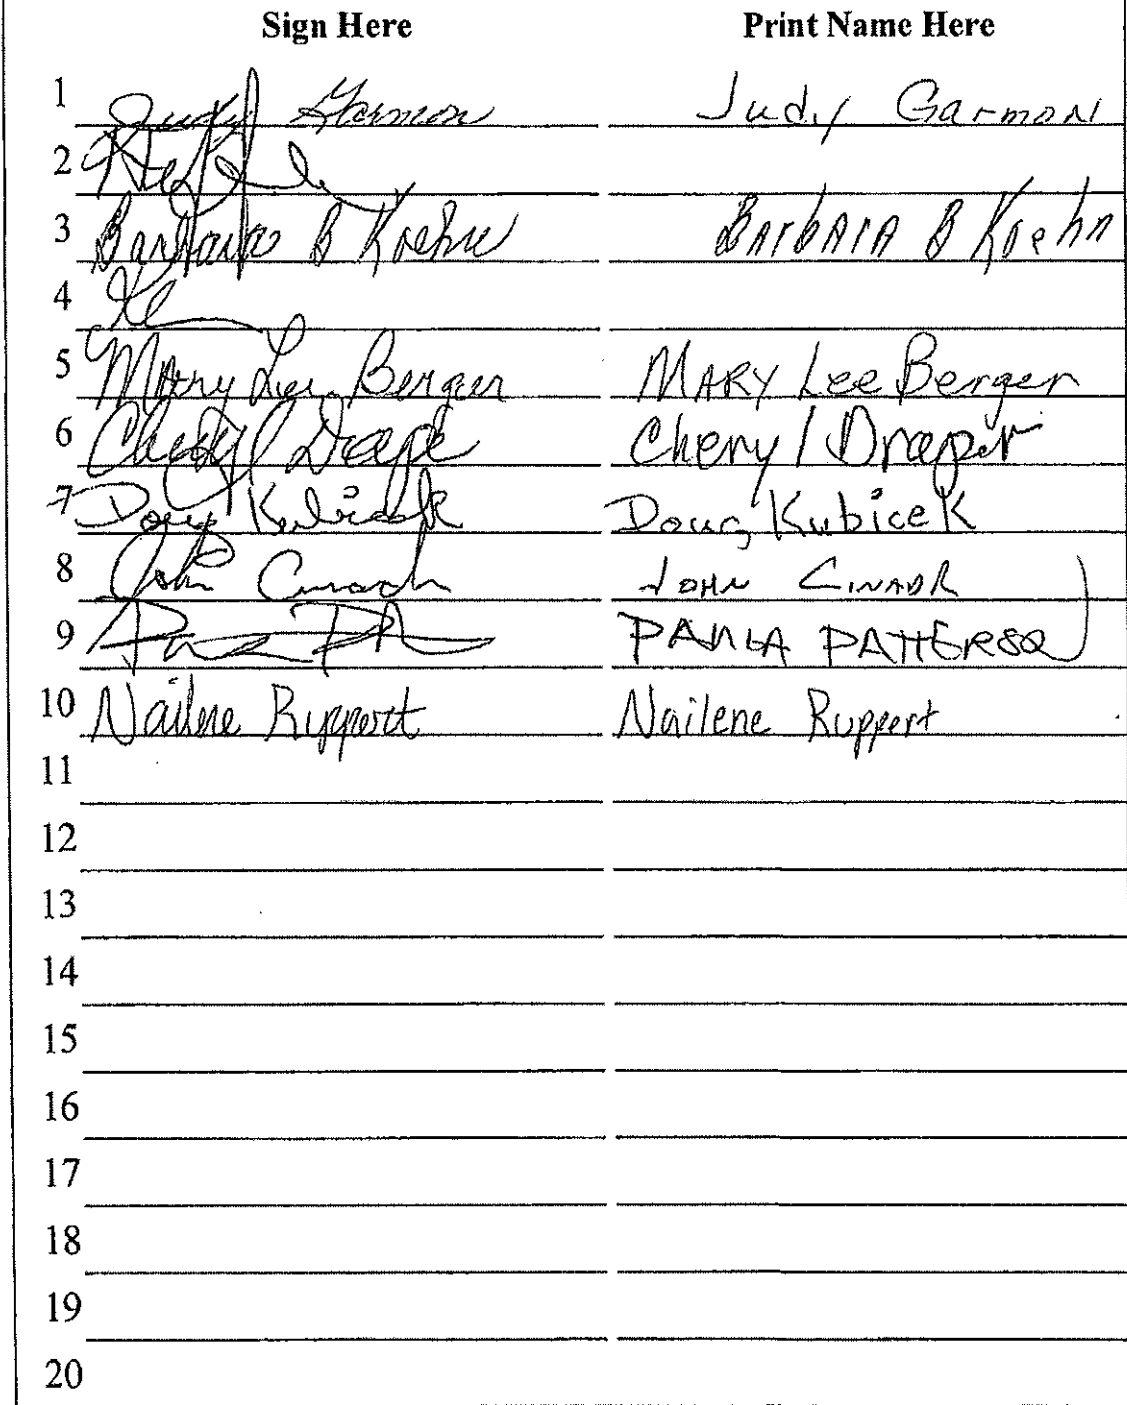 Sign Here Print Name Here
1 Judy Garmon Judy Garmon
2
3 Barbara B Koehn Barbara B Koehn
4
5 Mary Lee Berger Mary Lee Berger
6 Cheryl Drape Cheryl Draper
7 Doug Kubicek Doug Kubicek
8 John John Cinadr
9 PATTERSO
10 Nailene Ruppert Nailene Ruppert
11
12
13
14
15
16
17
18
19
20